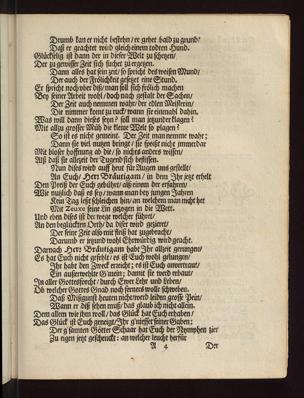 Drumb kan er nicht bestehn / er gehet bald zu grund /
Daß er geachtet wird gleich einem todten Hund.
Glückselig ist dann der in dieser Welt zu schetzen /
Der zu gewisser Zeit sich suchet zu ergetzen.
Dann alles hat sein zeit / so spricht des weisen Mund /
Der auch der Frölichkeit gesetzt eine Stund.
Er spricht noch über diß / man soll sich frölich machen
Bey seiner Arbeit wohl / doch nach gestalt der Sachen /
Der Zeit auch nemmen wahr / der edlen Meisterin /
Die nimmer komt zu ruck / wann sie einmahl dahin.
Was will dann dieses seyn? soll man jetzunder klagen?
Mit allzu grosser Müh die kleine Welt so plagen?
So ist es nicht gemeint. Der Zeit man nemme wahr;
Dann sie viel nutzen bringt / sie speiset nicht immerdar
Mit blosser hoffnung ab die / so nichts anders wissen /
Als daß sie allezeit der Tugend sich beflissen.
Nun dises wird auff heut für Augen uns gestellt /
An Euch / Herr Bräutigam / in dem Ihr jetzt erhelt
Den Preiß der Euch gebühret / alß einem der erfahren
Wie nutzlich daß es sey / wann man bey jungen Jahren
Kein Tag leßt schleichen hin / an welchem man nicht het
Mit Zeuxe seine Lin gezogen in die Wett.
Und eben dises ist der wege welcher führet /
An den beglückten Orth / da diser wird gezieret /
Der seine Zeit also mit fleiß hat zugebracht /
Darumb er jetzund wohl Ehrwürdig wird geacht.
Darnach Herr Bräutigam habt Ihr allzeit gerungen /
Es hat Euch nicht gefehlt / es ist Euch wohl gelungen /
Ihr habt den Zweck erreicht; es ist Euch anvertraut /
Ein außerwehlte Gmein; damit sie werd erbaut /
In aller Gottesforcht / durch Ewer Lehr und Leben /
Ob welcher Gottes Gnad noch ferners wolle schweben.
Daß Mißgunst heuten nicht / werd leiden grosse Pein /
Wann er diß sehen muß / das glaub ich nicht allein.
Dem allem wie ihm woll / das Glück hat Euch erhaben /
Das Glück ist Euch geneigt / Ihr gnießet seiner Gaben;
Der gsamten Götter Schaar hat Euch der Nymphen zier
Zu eigen jetzt geschenckt: an welcher leucht herfür
A 4 Der